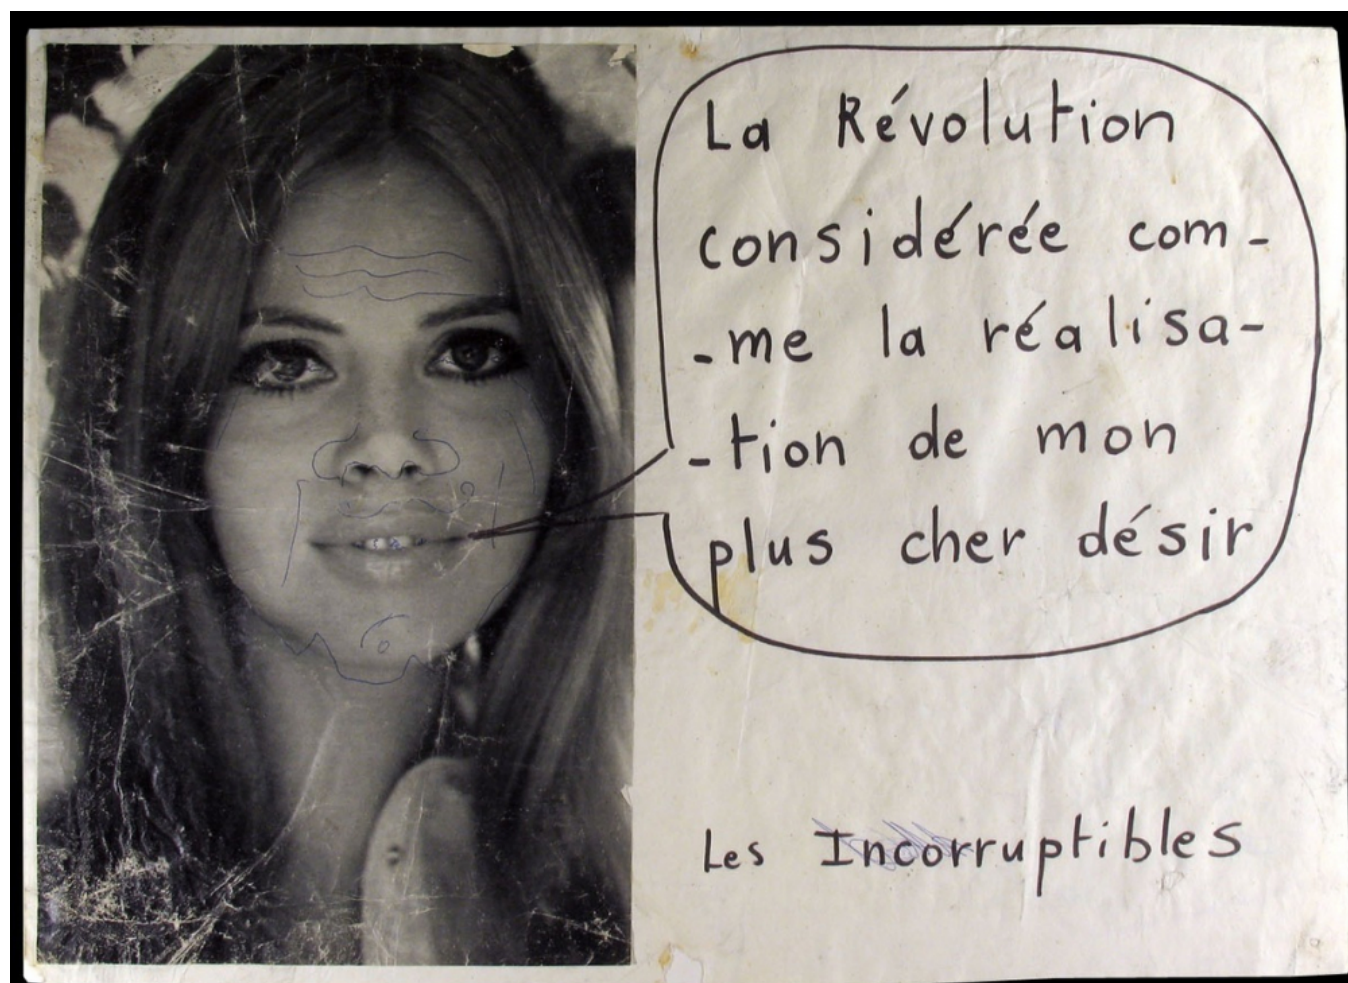 La Révolution
considérée com-
-me la réalisa-
-tion de mon
plus cher désir
Les Incorruptibles